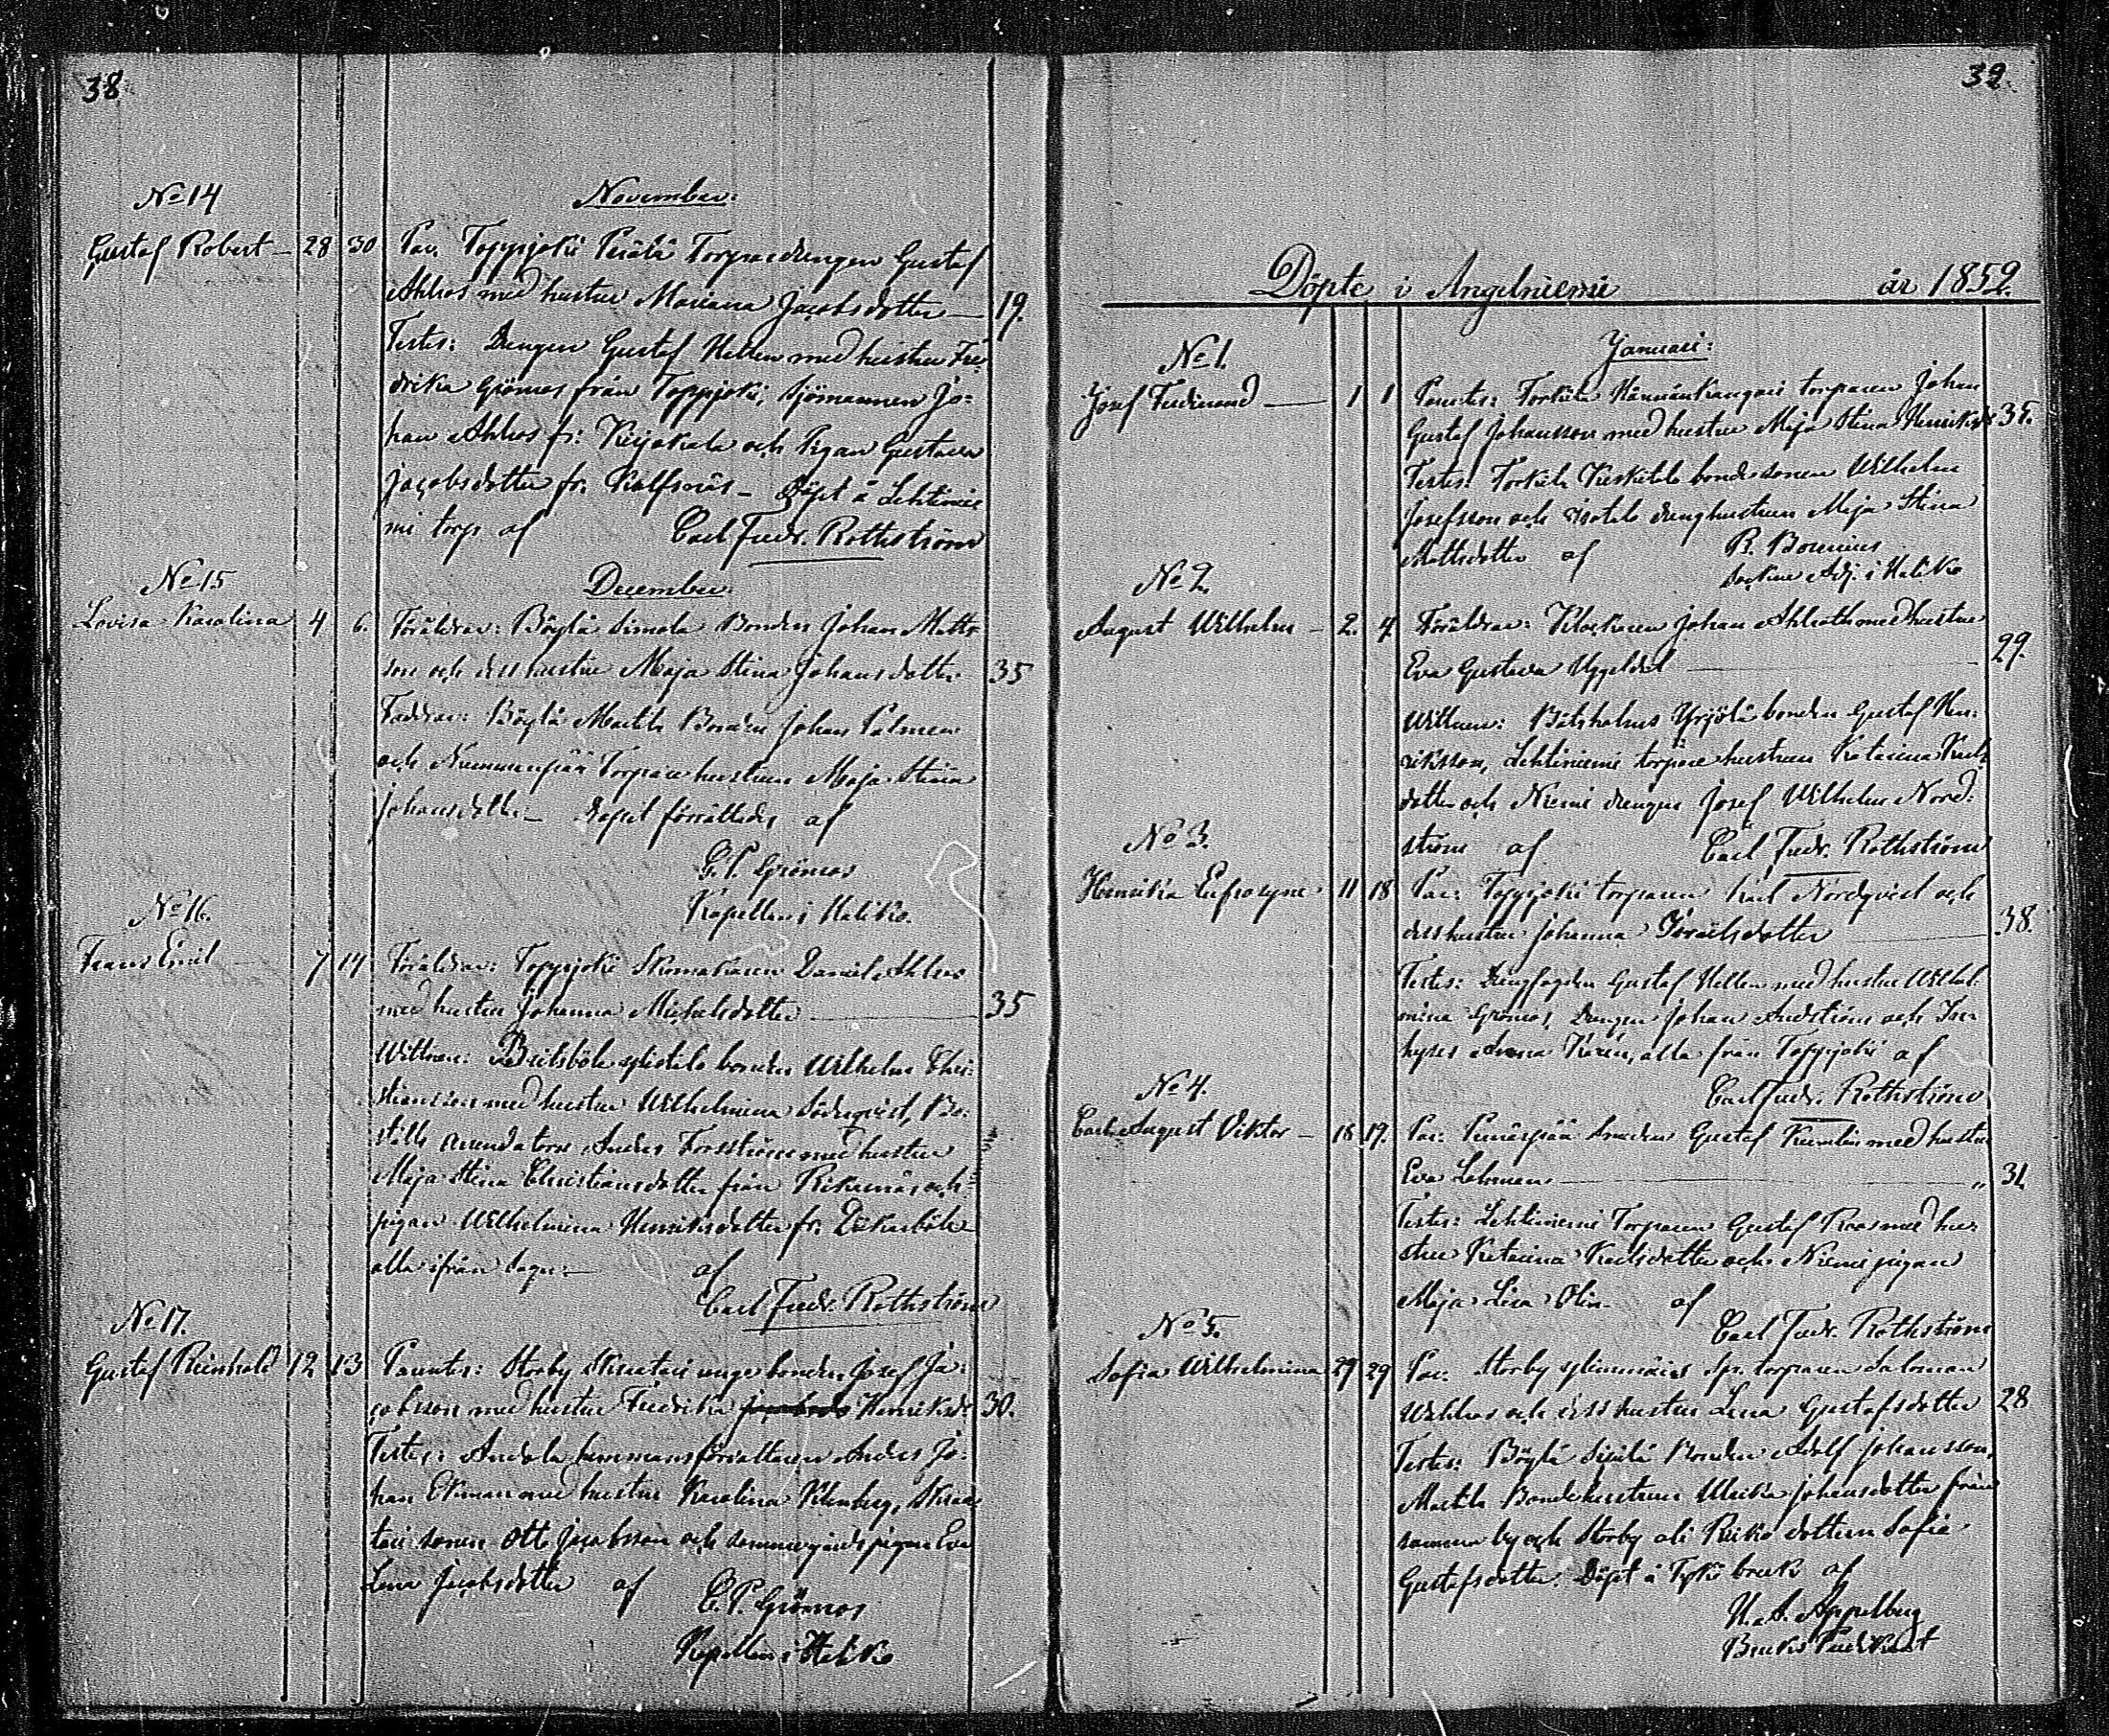 38
No 14
November:
Gustaf Robert — 28 30 Par. Toppjoki Perälä Torparedrengen Gustaf
Ahlros med hustru Mariana Jacobsdotter — 19.
Testes: Drengen Gustaf Hellen med hustru Fre-
drika Grönros från Toppjoki, Sjömannen Jo-
han Ahlros fr: Keijakala och Pigan Gustava
Jacobsdotter fr. Kalfsnäs — Döpt å Lehtinie
mi torp af Carl Fredr. Rothström
No 15
December:
Lovisa Karolina 4 6. Föräldrar: Böylä Simola Bonden Johan Matts
son och dess hustru Maja Stina Johansdotter 35
Faddrar: Böylä Mattila Bonden Johan Palmen
och Nummenpää Torpare hustrun Maja Stina
Johansdotter — dopet förrättades af
G. P. Grönros
Kapellan i Haliko.
No 16.
Frans Emil — 7 14 Föräldrar: Toppjoki Skomakaren Daniel Ahlros
med hustru Johanna Michelsdotter — 35
Wittnen: bonden Wilhelm Chri-
stiansson med hustru Wilhelmina Söderqvist, Bo-
ställs arrendatorn Anders Forsström med hustru
Maja Stina Christiansdotter från Rikenäs och
pigan Wilhelmina Henriksdotter fr.
alla ifrån af
Carl Fredr. Rothström
No 17.
Gustaf Reinhold 12 13 Parentes: Storby Skraatari unge bonden Josef Ja-
cobsson med hustru Fredrika Henriksdr 30.
Testes: Andola hemmansförvaltaren Anders Jo-
han Ekman med hustru Karolina Klenberg, Skraa
tari sonen Otto Jacobsson och pigan Eva
Lena Jacobsdotter af G. P. Grönros
Kapellan i Haliko
39.
Döpte i Angelniemi år 1852.
No 1.
Januari:
Josef Ferdinand — 1 1 Parentes: Torkila torparen Johan
Gustaf Johansson med hustru Maja Stina Henriksdr 35.
Testes: Torkila Keskitalo bondesonen Wilhelm
Josefsson och Isotalo drenghustrun Maja Stina
Mattsdotter af R. Bonnius
Sockne Adj. i Haliko
No 2.
August Wilhelm — 2. 4. Föräldrar: Klockaren Johan Ahlroth med hustru
Eva Gustava Uggeldal — 29.
Wittnen: Båtsholms Yrjölä bonden Gustaf Hen-
riksson, Lehtiniemi torpare hustrun Katarina Karls
dotter och Niemi drengen Josef Wilhelm Nord-
ström af Carl Fredr. Rothström
No 3.
Henrika Eufrosyne 11 18 Par: Toppjoki torparen Karl Nordqvist och
dess hustru Johanna Israelsdotter — 38.
Testes: Drengfogden Gustaf Hellen med hustru Wilhel-
mina Grönros, Drengen Johan Andström och In-
hyses Anna Karin, alla från Toppjoki af
Carl Fredr. Rothström
No 4.
Carl August Viktor — 18 19. Par: Peräspää Smeden Gustaf Kumlin med hustru
Eva Lehmen — „ 31.
Testes: Lehtiniemi Torparen Gustaf Roos med hu-
stru Katarina Karlsdotter och Niemi pigan
Maja Lisa Olin af
Carl Fredr. Rothström
No 5.
Sofia Wilhelmina 29 29 Par. Storby Ylinummis Sp. torparen Saloman
Wahlros och dess hustru Lena Gustafsdotter 28
Testes: Böylä Sipilä Bonden Adolf Johansson,
Mattila Bondehustrun Ulrika Johansdotter från
samma by och Storby ali Reiko dottern Sofia
Gustafsdotter. Döpt å Tykö bruk af
H. A. Appelberg
Bruks Predikant